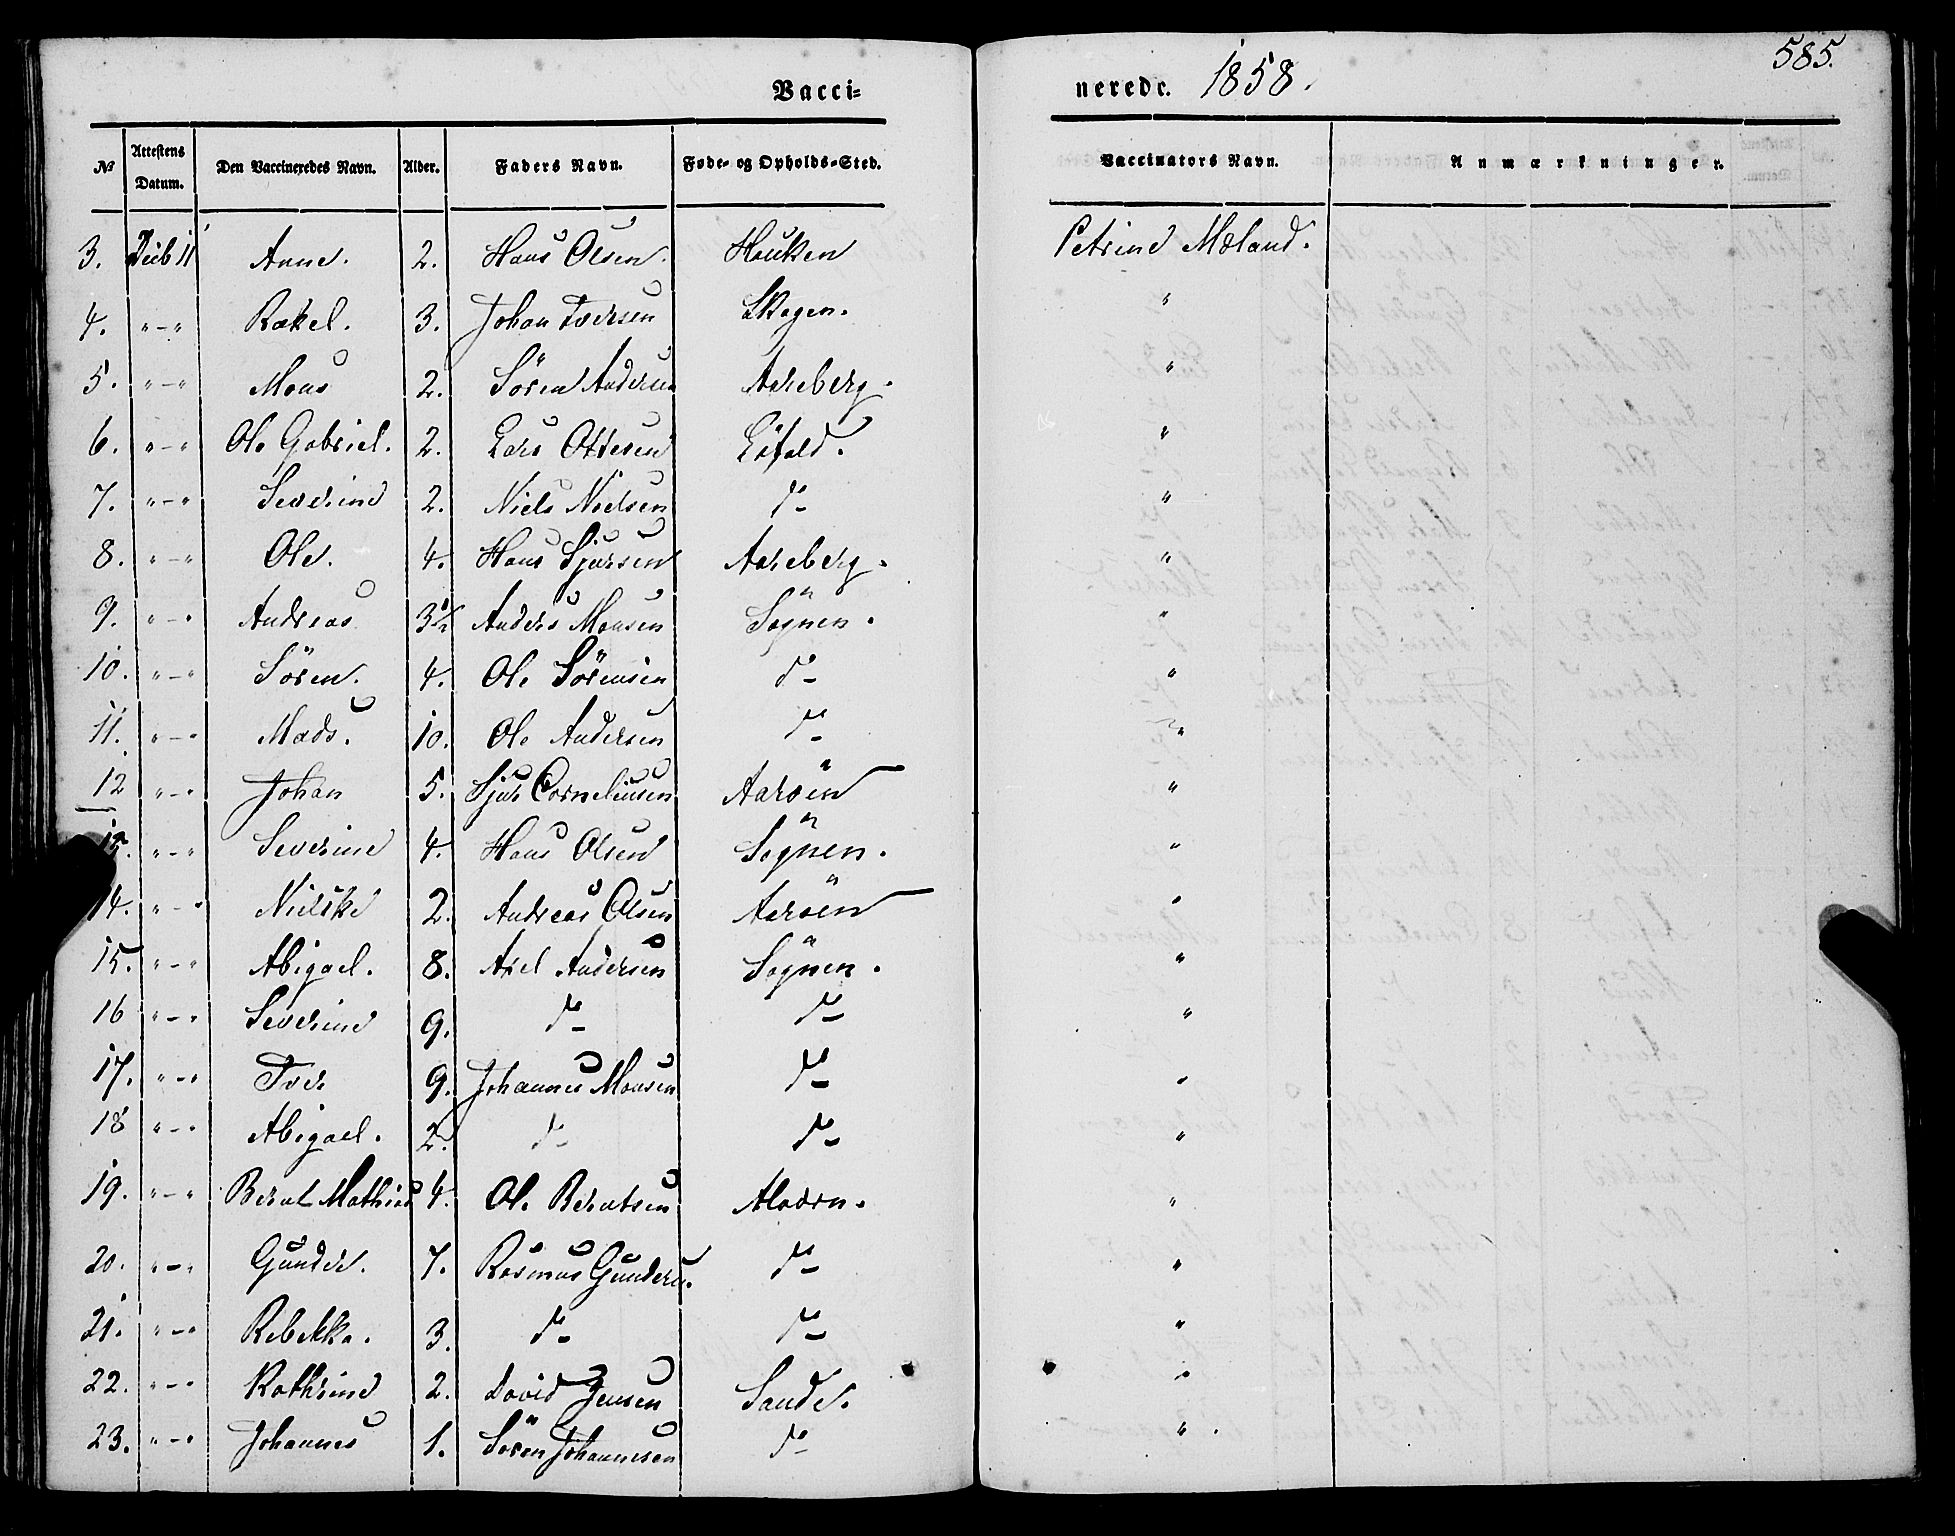 Vacci-
nerede. 1858.
585.
№ Attestens Datum. Den Vaccineredes Navn. Alder. Faders Navn. Føde- og Opholds-Sted. Vaccinators Navn. Anmærkninger.
3. 11 Anne. 2. Hans Olsen. Houken Petrine Mæland.
4. "-" Rakel. 3. Johan Iversen Skogen. "
5. "-" Mons 2. Sören Andersen Aareberg. "
6. "-" Ole Gabriel. 2. Lars Ottesen "
7. "-" Severine 2. Niels Nielsen do "
8. "-" Ole. 4. Hans Sjursen Aareberg. "
9. "-" Andreas 3½ Anders Monsen Sögnen. "
10. "-" Sören. 4. Ole Sörensen do "
11. "-" Mads. 10. Ole Andersen do "
12 "-" Johan 5. Sjur Corneliusen Aaröen "
13. "-" Severine 4. Hans Olsen Sögnen. "
14. "-" Nielske 2. Andreas Olsen Aaröen "
15. "-" Abigael. 8. Axel Andersen Sögnen. "
16 "-" Severine 9. do do "
17. "-" Iver 9. Johannes Monsen do "
18 "-" Abigael. 2. do do "
19. "-" Bernt Mathias 4. Ole Berntsen Aladen. "
20. "-" Gunder. 7. Rasmus Gunders. do "
21. "-" Rebekka. 3. do do "
22. "-" Kathrine 2. David Jensen Sande. "
23. "-" Johannes 1. Sören Johannesen do "